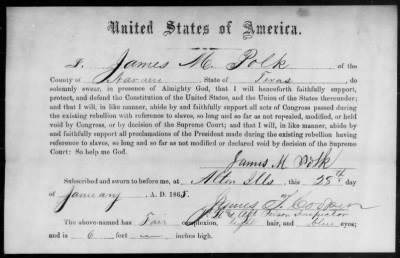 United States of America.
I, James M. Polk of the
County of Navarro, State of Texas, do
solemnly swear, in presence of Almighty God, that I will henceforth faithfully support,
protect, and defend the Constitution of the United States, and the Union of the States thereunder;
and that I will, in like manner, abide by and faithfully support all acts of Congress passed during
the existing rebellion with reference to slaves, so long and so far as not repealed, modified, or held
void by Congress, or by decision of the Supreme Court; and that I will, in like manner, abide by
and faithfully support all proclamations of the President made during the existing rebellion having
reference to slaves, so long and so far as not modified or declared void by decision of the Supreme
Court: So help me God.
James M Polk
Subscribed and sworn to before me, at Alton Ills, this 25th day
of January A.D. 1865.
James T. Cooper
Prison Inspector
The above-named has Fair complexion, light hair, and blue eyes;
and is 6 feet — inches high.